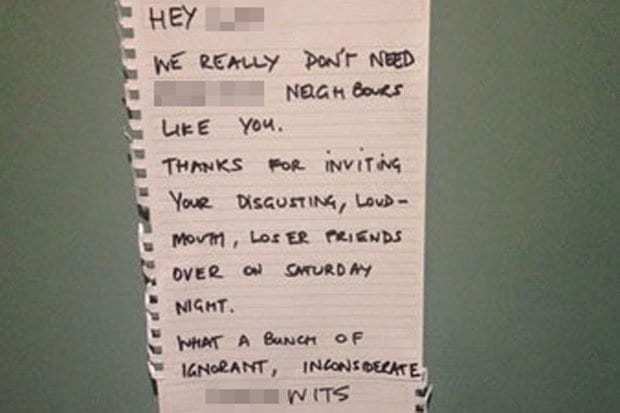 HEY
WE REALLY DON'T NEED
NEIGHBOURS
LIKE YOU.
THANKS FOR INVITING
YOUR DISGUSTING, LOUD-
MOUTH, LOSER FRIENDS
OVER ON SATURDAY
NIGHT.
WHAT A BUNCH OF
IGNORANT, INCONSIDERATE
WITS